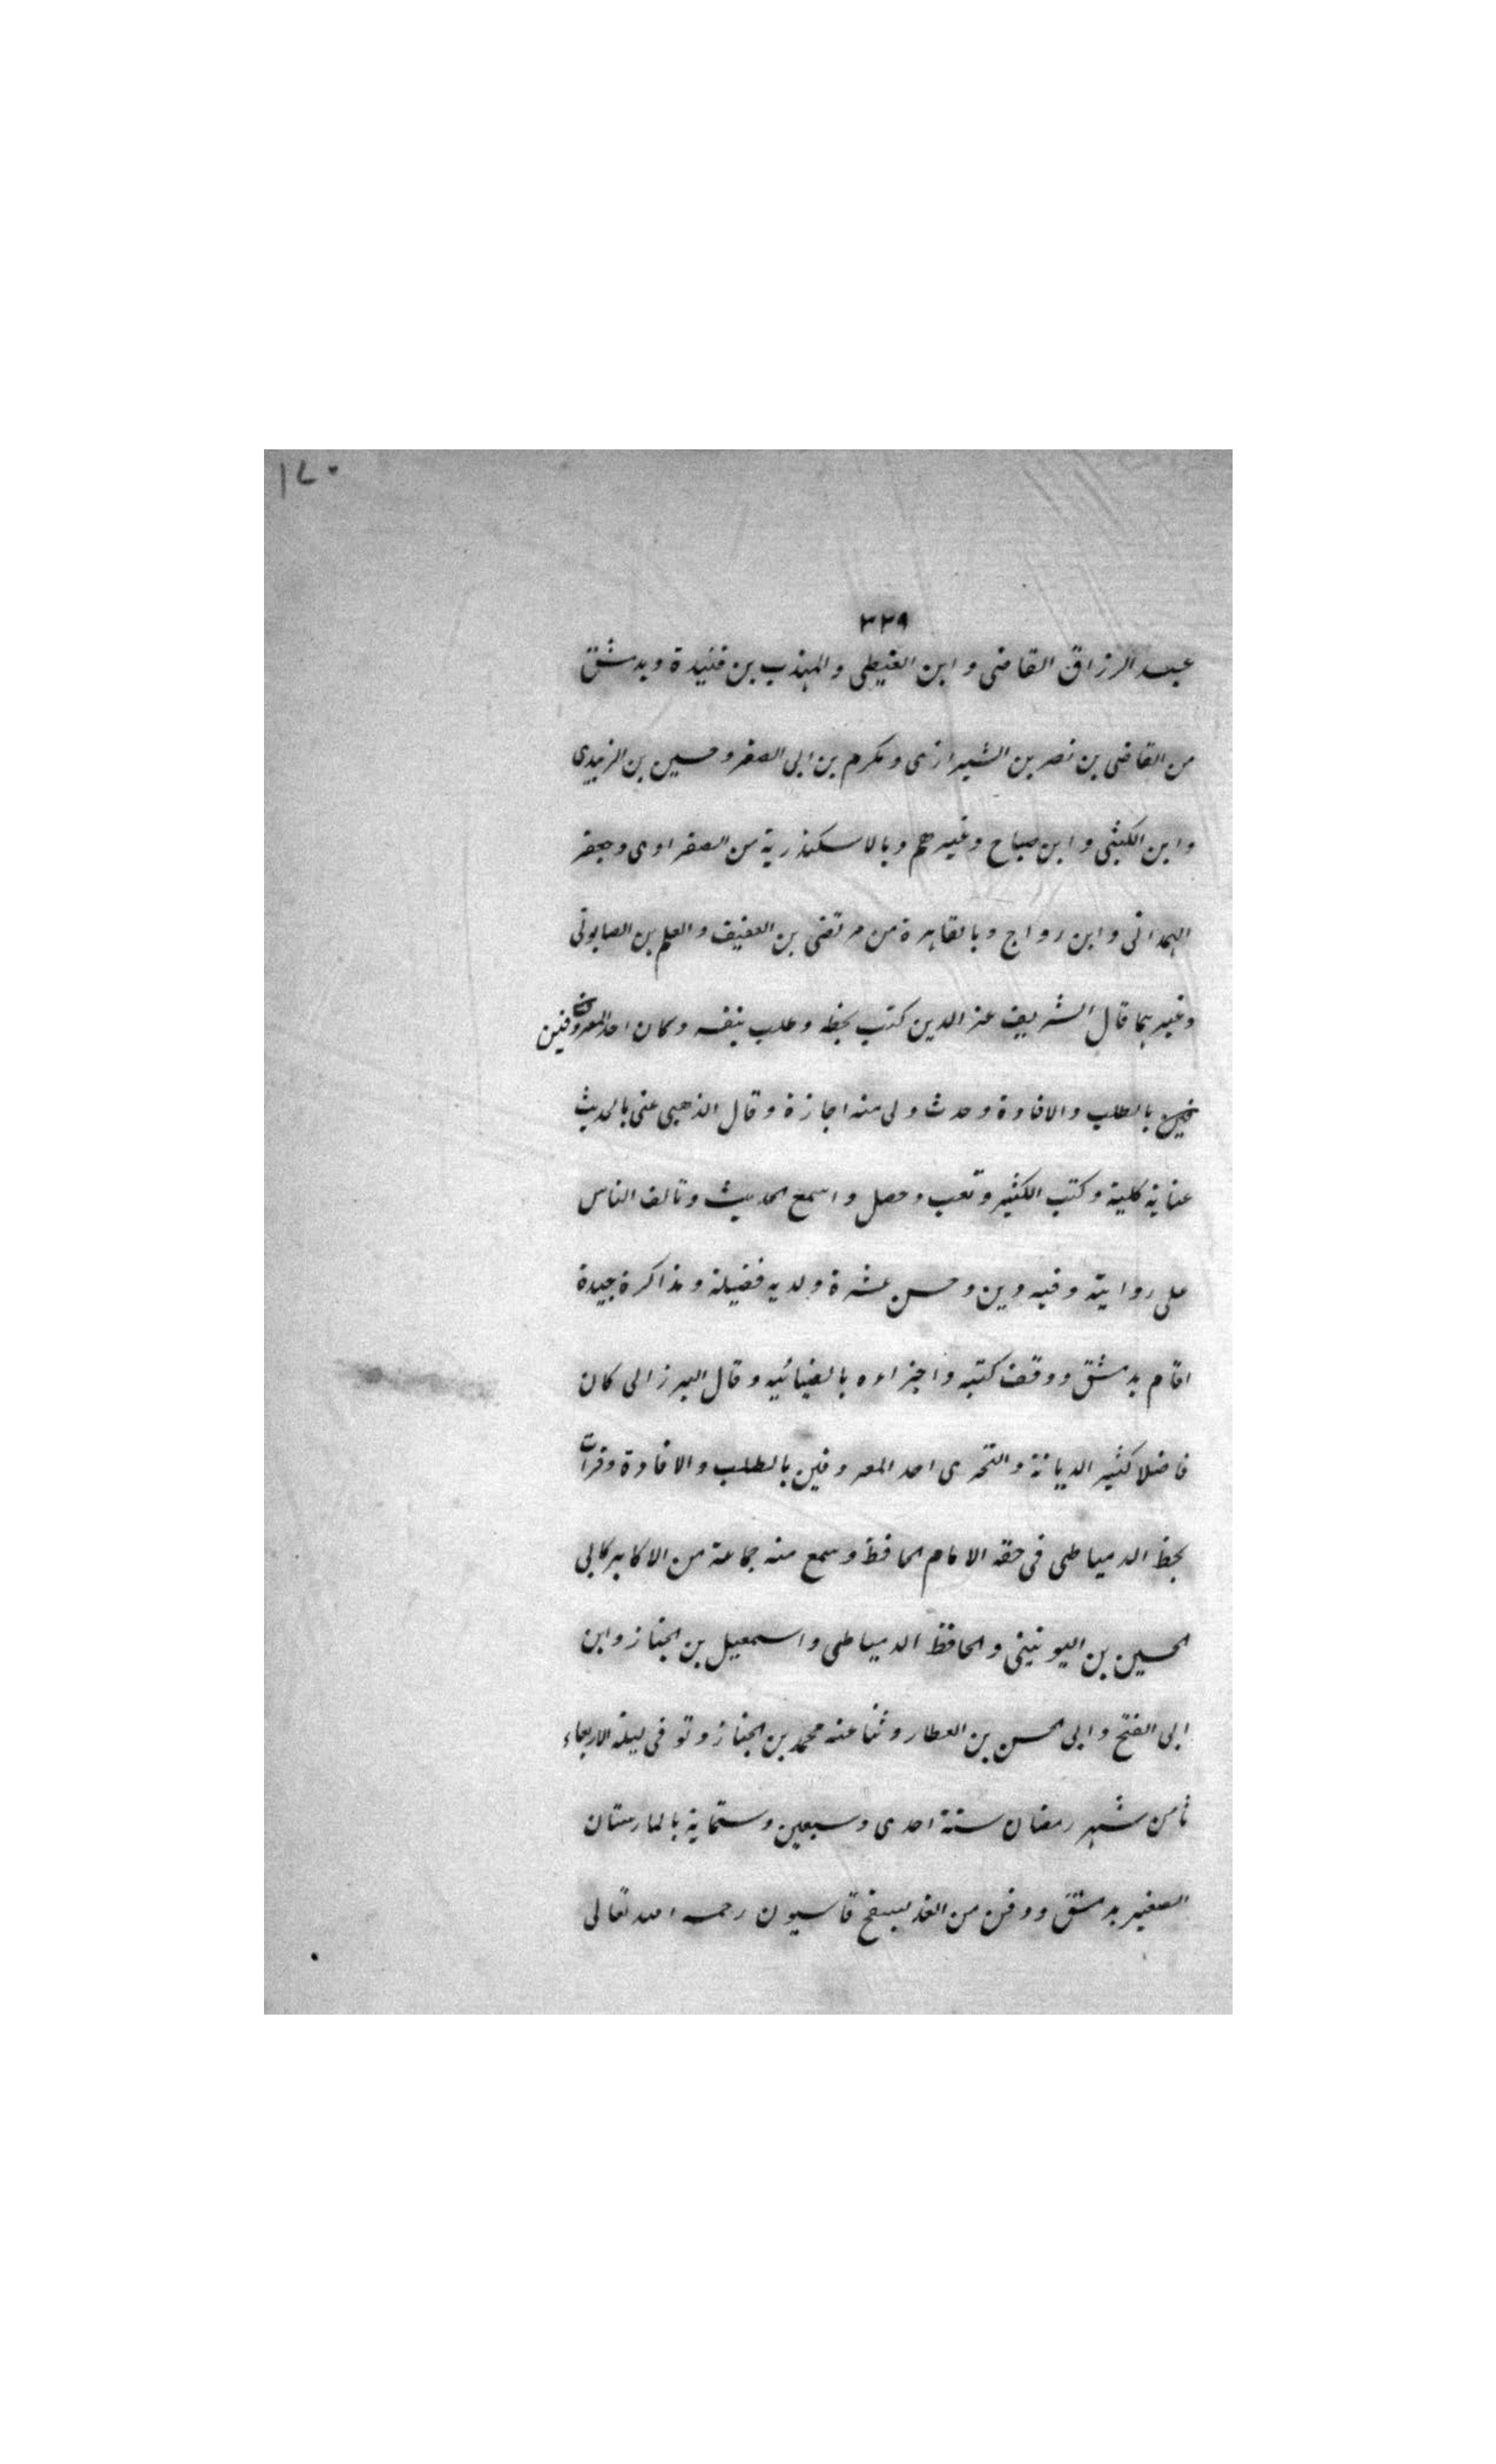 ١٧٠
٣٣٩
عبد الرزاق القاضى و ابن القيطى والمهذب بن قنيدة وبدمشق
من القاضى بن نصر بن الشيرازى ومكرم بن ابى الصقر وحسين بن الزبيدى
وابن اللتى و ابن صباح وغيرهم وبالاسكندرية من الصفراوى وجعفر
الهمدانى و ابن رواج وبالقاهرة من مرتضى بن العفيف والعلم بن الصابونى
وغيرهما قال الشريف عز الدين كتب بخطه وطلب بنفسه وكان احد المعروفين
بالطلب والافادة وحدث ولى منه اجازة وقال الذهبى عنى بالحديث
عناية كلية وكتب الكثير وتعب وحصل واسمع الحديث وتالف الناس
على روايته وفيه دين وحسن عشرة ولديه فضيلة ومذاكرة جيدة
اقام بدمشق ووقف كتبه واجزاءه بالضيائيه وقال البرزالى كان
فاضلا كثير الديانة والتحرى احد المعروفين بالطلب والافادة وقرأت
بخط الدمياطى فى حقه الامام الحافظ وسمع منه جماعة من الاكابر كابى
الحسين بن اليونينى والحافظ الدمياطى واسمعيل بن الخباز وابن
ابى الفتح وابى الحسن بن العطار وثنا عنه محمد بن الخباز وتوفى ليلة الاربعاء
ثامن شهر رمضان سنة احدى وسبعين وستماية بالمارستان
الصغير بدمشق ودفن من الغد بسفح قاسيون رحمه الله تعالى